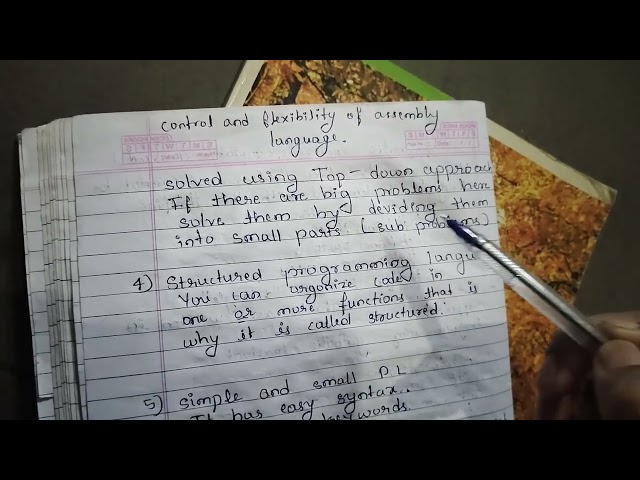 control and flexibility of assembly
language.
solved using Top-down approach
If there are big problems here
solve them by deviding them
into small parts (sub problems)
4) Structured programming langu
You can organize code in
one or more functions that is
why it is called structured.
5) simple and small P.L
It has easy syntax..
keywords.